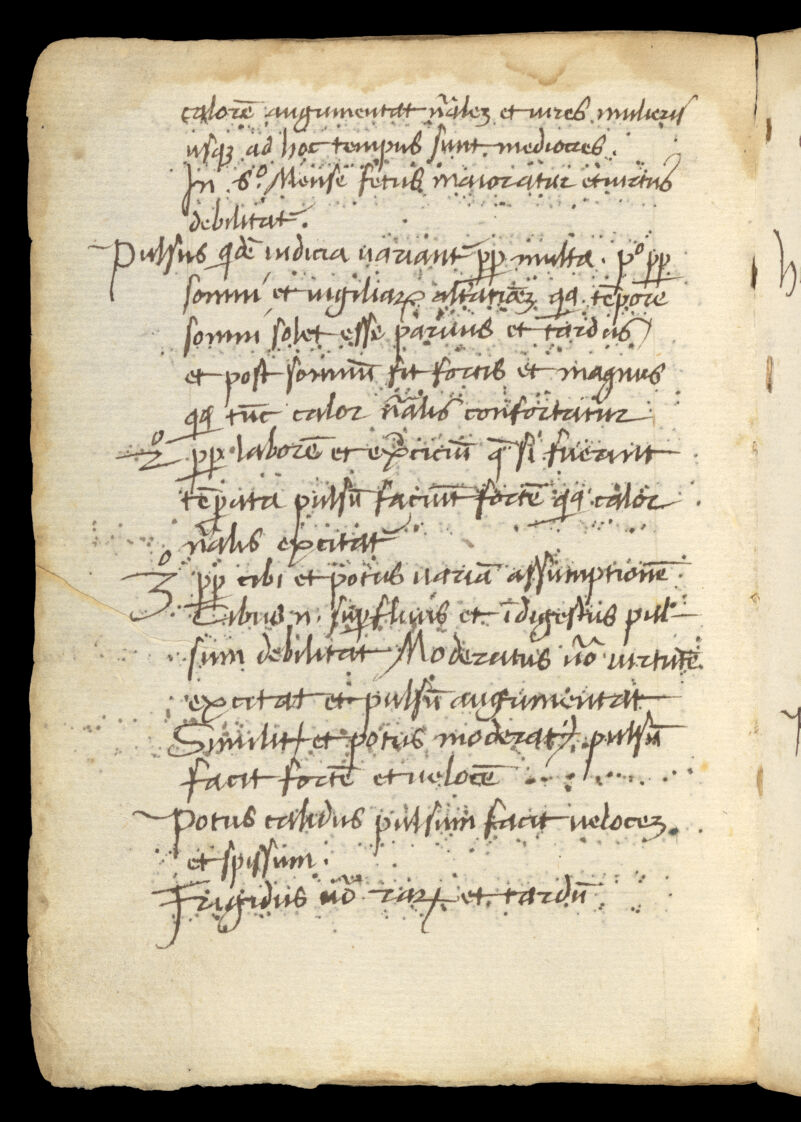 calorē augumentat nãlez et uires mulieris
usqz ad hoc tempus sunt mediocres.
In .6.º Mense fetus maioratur et uirtus
debilitat̄.
Pulsus qdē iudicia uariant̄ pp multa. pº pp
somni et uigiliaꝝ alt̄atiõez qq tēpore
somni solet esse paruus et tardus
et post somnū fit fortis et magnus
qq tūc calor nãlis confortatur
2º pp laborē et ex̄ciciū q̄ si fuerint
tēpata pulsū faciūt fortē qq calor
nãlis excitat̄
3º pp cibi et potus uariā assumptionē
Cibus n. supfluus et īdigestus pul-
sum debilitat Moderatus uº uirtutē
excitat et pulsū augumentat
Similit̄ et potus moderat⁹ pulsū
facit fortē et uelocē
Potus calidus pulsum facit uelocez
et spissum.
Frigidus uº raꝝ et tardū
h